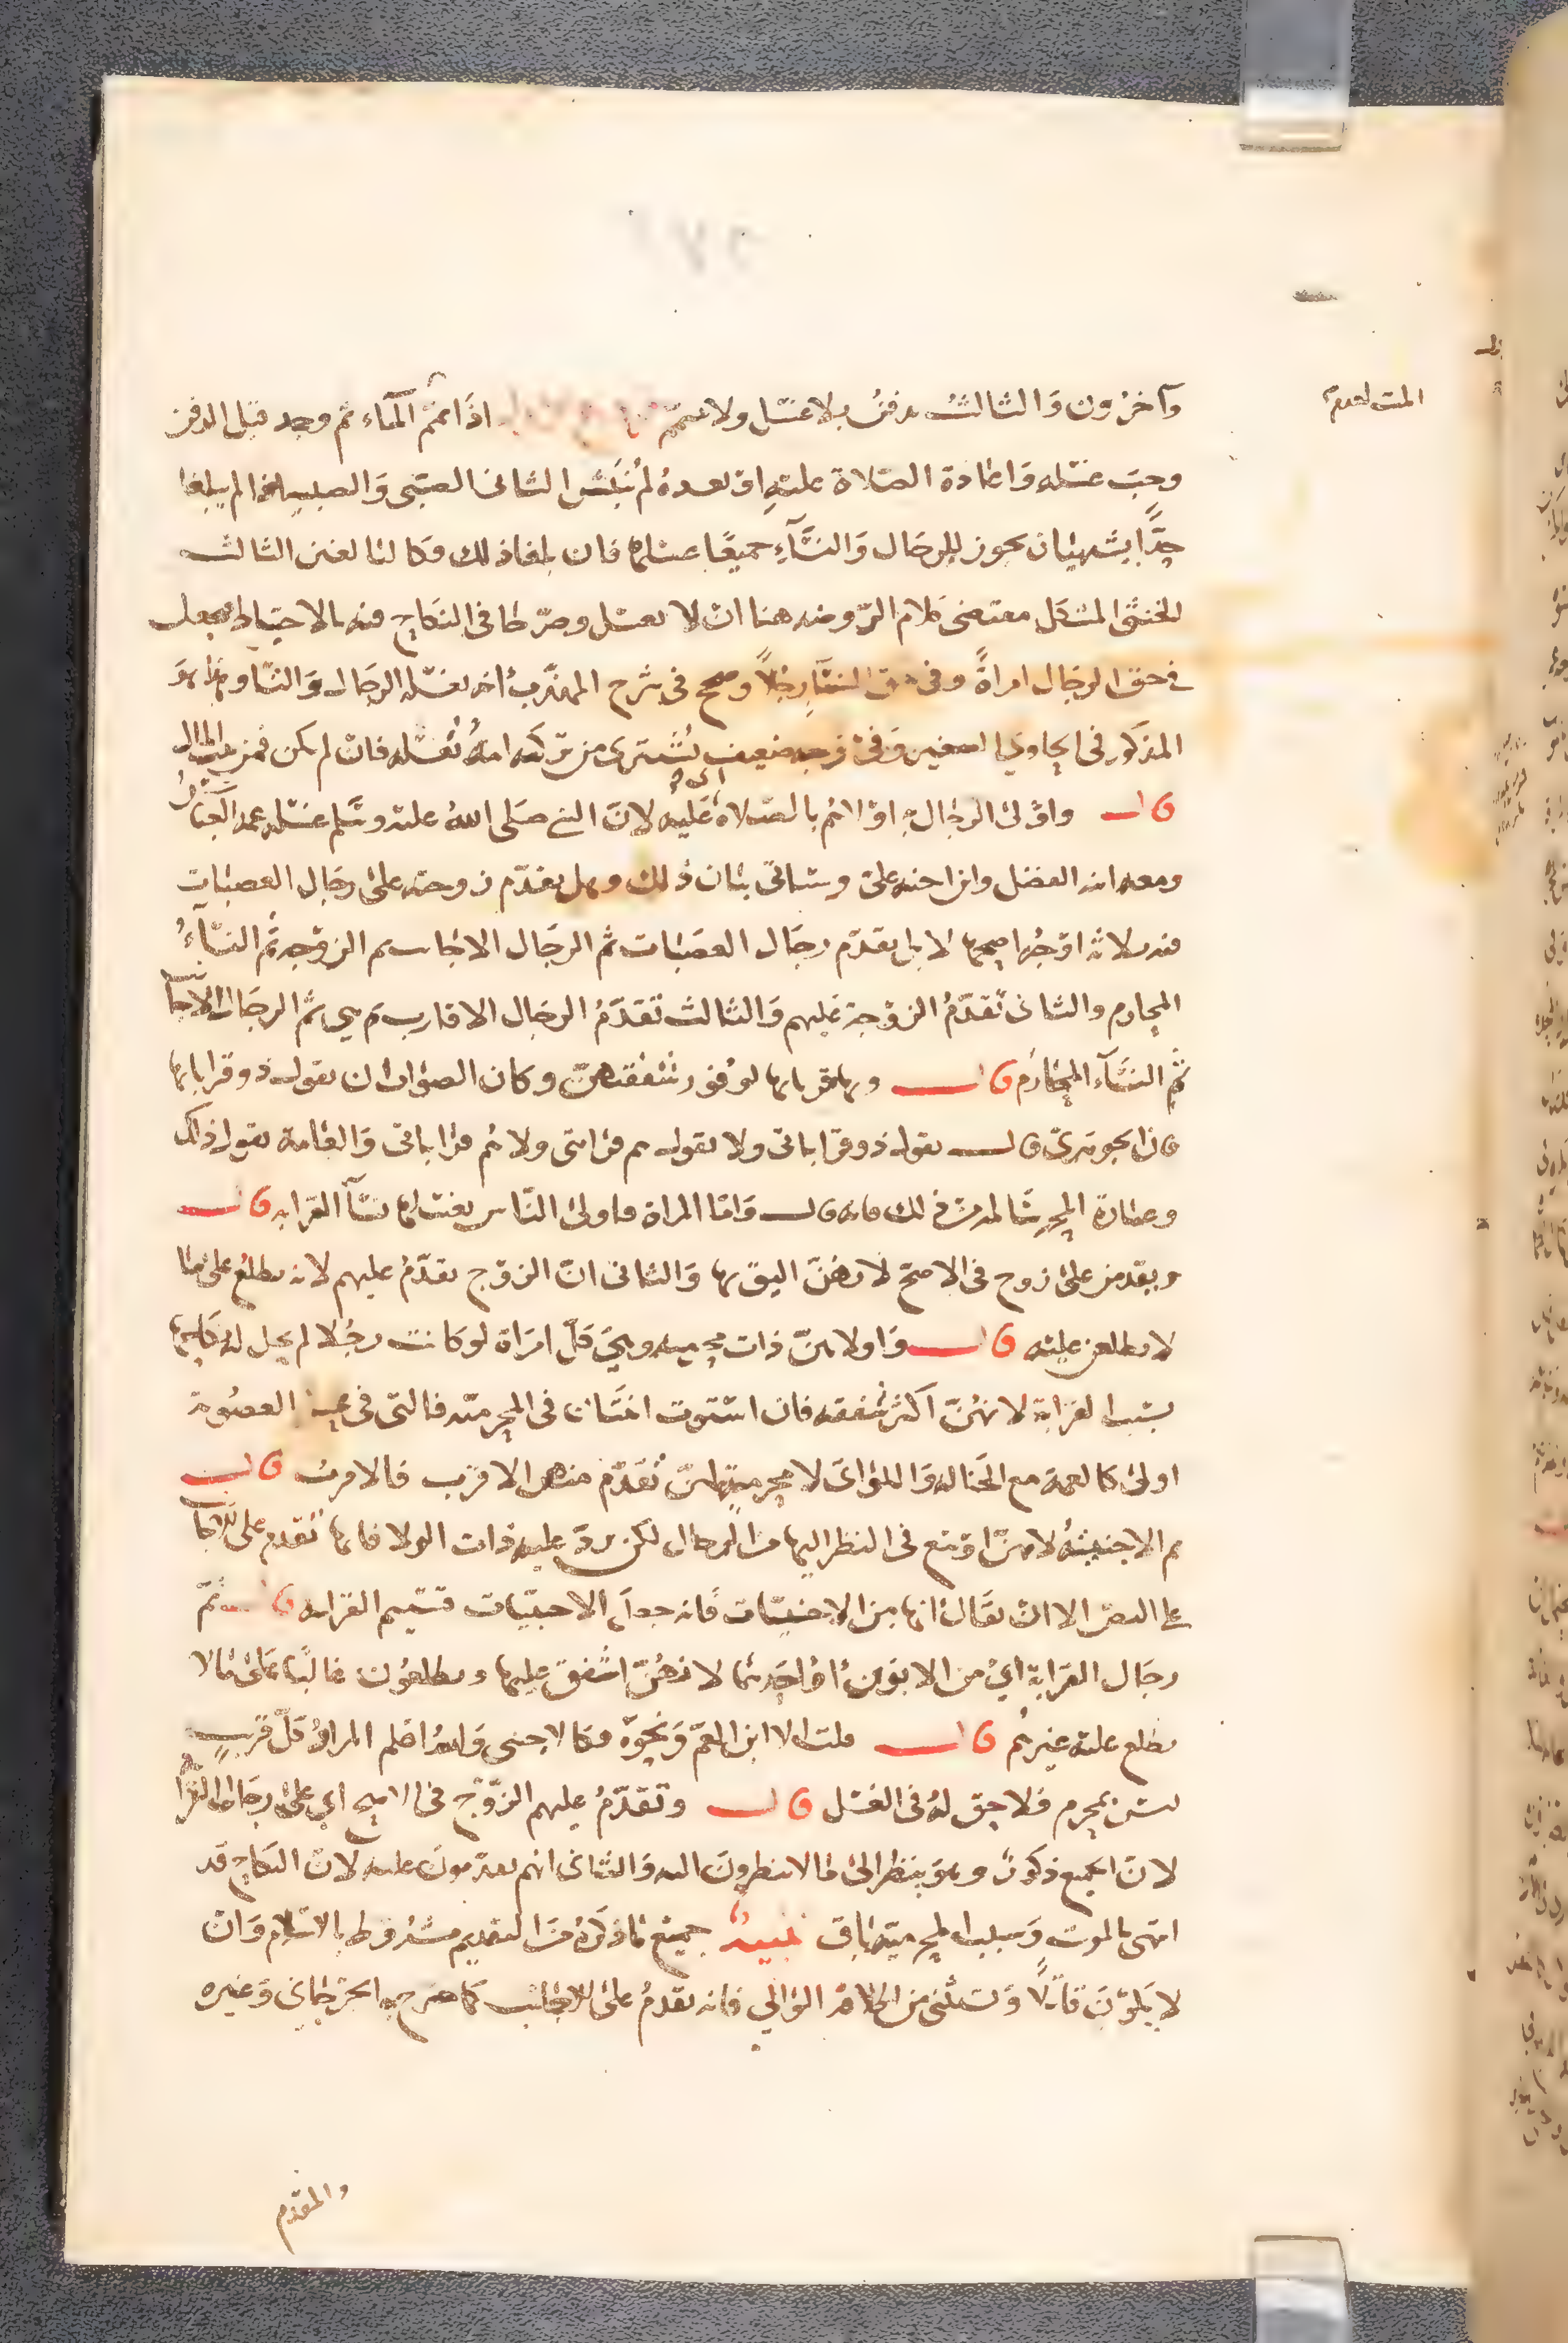 الميت لعدم
وآخرون والثالث يدفن بلا غسل ولا تيمم اذا يمم الماء ثم وجد قبل الدفن
وجب غسله واعادة الصلاة عليه او بعده لم ينبش الثاني الصبي والصبية اذا لم يبلغا
حدًّا يشتهيان يجوز للرجال والنساء جميعًا غسلهما فان بلغا ذلك فكالبالغين الثالث
للخنثى المشكل مقتضى كلام الروضه هنا ان لا يغسل وصرح في النكاح فيه بالاحتياط فيجعل
في حق الرجال امراةً وفي حق النساء رجلاً وصحح في شرح المهذب انه يغسله الرجال والنسا وهو
المذكور في الحاوي الصغير وفي وجه ضعيف يُشترى من تركته امة تغسله فان لم يكن فمن بيت المال
قال واولى الرجال به اولاهم بالصلاة عليه لان النبي صلى الله عليه وسلم غسله عمه العباس
ومعه ابنه الفضل وابن اخيه علي وسياتي بيان ذلك وهل يقدم زوجته على رجال العصبات
فيه ثلاثة اوجه اصحها لا بل يقدم رجال العصبات ثم الرجال الاجانب ثم الزوجه ثم النساء
المحارم والثاني تقدم الزوجة عليهم والثالث تقدم الرجال الاقارب ثم هي ثم الرجال الاجانب
ثم النساء المحارم قال وبها قرباتها لوفور شفقتهن وكان الصواب ان يقول ذو قراباتها
قال الجوهري قال يقول ذو قراباتي ولا يقول هم قرابتي ولا هم قراباتي والعامة تقول ذلك
وعبارة المحرر سالمة من ذلك فانه قال واما المراة فاولى الناس بغسلها نسآ القرابه قال
ويقدمن على زوج في الاصح لانهن اليق بها والثاني ان الزوج يقدم عليهم لانه يطلع على ما
لا يطلعن عليه قال واولاهن ذات محرميه وهي كل امراة لو كانت رجلا لم يحل له نكاحها
بسبب القرابة لانهن اكثر شفقه فان استوت اثنتان في المحرميه فالتي في محل العصوبة
اولى كالعمة مع الخاله واللواتي لا محرمية لهن تقدم منهن الاقرب فالاقرب قال
ثم الاجنبية لانهن اوسع في النظر اليها من الرجال لكن يرد عليه ذات الولا فانها تقدم على الاجانب
على النص الا ان يقال انها من الاجنبيات فانه جعل الاجنبيات قسيم القرابه قال ثم
رجال القرابة اي من الابوين او احدهما لانهن اشفق عليها ويطلعون غالبًا على ما لا
يطلع عليه غيرهم قال قلت الا ابن العم ونحوه فكالاجنبي والله اعلم المراد كل قريب
ليس بمحرم فلا حق له في الغسل قال وتقدم عليهم الزوج في الاصح اي على رجال القرابه
لان الجميع ذكور وهو ينظر الى ما لا ينظرون اليه والثاني انهم يقدمون عليه لان النكاح قد
انتهى بالموت وسبب المحرمية باق تنبيه جميع ما ذكره من التقديم مشروط بالاسلام وان
لا يكون قاتلًا ويستثنى من اطلاقه الوالي فانه يقدم على الاجانب كما صرح به الجرجاني وغيره
والمقدم